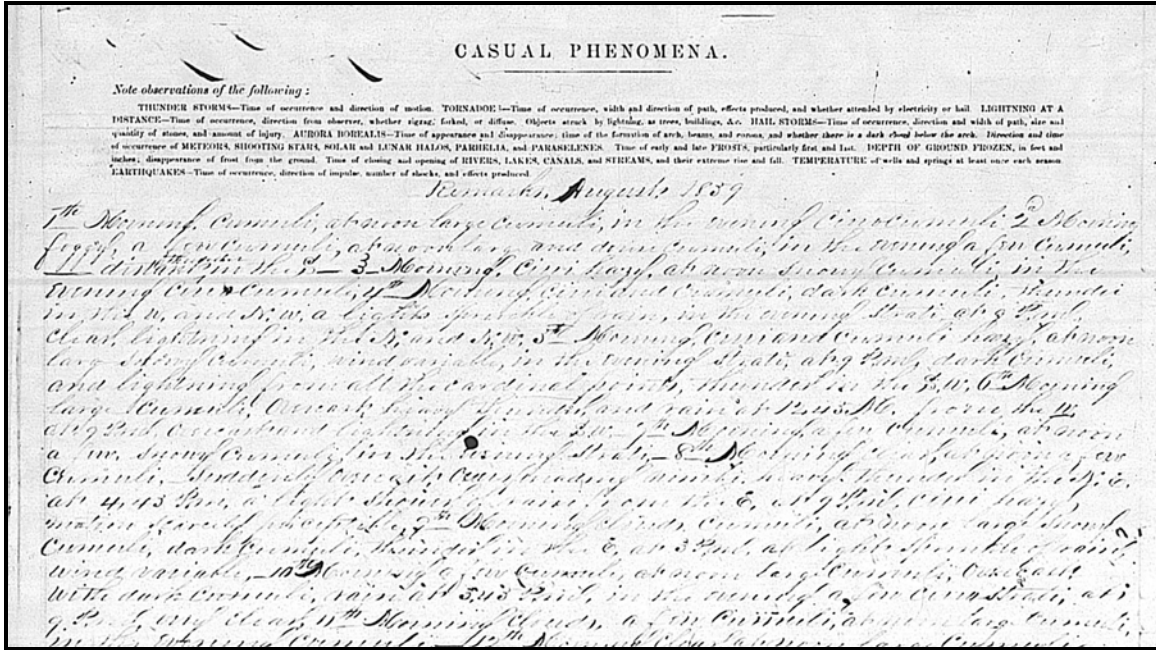 CASUAL PHENOMENA.
Note observations of the following:
THUNDER STORMS—Time of occurrence and direction of motion. TORNADOES—Time of occurrence, width and direction of path, effects produced, and whether attended by electricity or hail. LIGHTNING AT A
DISTANCE—Time of occurrence, direction from observer, whether zigzag, forked, or diffuse. Objects struck by lightning, as trees, buildings, &c. HAIL STORMS—Time of occurrence, direction and width of path, size and
quantity of stones, and amount of injury. AURORA BOREALIS—Time of appearance and disappearance; time of the formation of arch, beams, and corona, and whether there is a dark cloud below the arch. Direction and time
of occurrence of METEORS, SHOOTING STARS, SOLAR and LUNAR HALOS, PARHELIA, and PARASELENES. Time of early and late FROSTS, particularly first and last. DEPTH OF GROUND FROZEN, in feet and
inches; disappearance of frost from the ground. Time of closing and opening of RIVERS, LAKES, CANALS, and STREAMS, and their extreme rise and fall. TEMPERATURE of wells and springs at least once each season.
EARTHQUAKES—Time of occurrence, direction of impulse, number of shocks, and effects produced.
Remarks, August 1859
1th Morning, Cumuli, at noon large cumuli, in the evening Cirrocumuli 2d Morning
foggy, a few cumuli, at noon large and dense cumuli, in the evening a few cumuli,
distant in the 3d Morning, Cirri hazy, at noon snowy cumuli, in the
evening Cirro cumuli, 4th Morning Cirri and cumuli, dark cumuli, thunder
in the W. and N.W. a light sprinkle of rain, in the evening strati, at 9 P.M.
clear, lightning in the N. and N.W. 5th Morning, Cirri and cumuli hazy, at noon
large snowy cumuli, wind variable, in the evening strati, at 9 P.M. dark cumuli,
and lightning from all the cardinal points, thunder in the S.W. 6th Morning
large cumuli, Overcast heavy thunder, and rain at 12.45 M. from the W.
at 9 P.M. overcast and lightning in the S.W. 7th Morning a few cumuli, at noon
a few snowy cumuli, in the evening strati, 8th Morning clear, at noon a few
cumuli. Suddenly overcast heavy thunder in the N.E.
at 4.45 P.M. a light shower of rain from the E. At 9 P.M. cirri hazy,
motion scarcely perceptible, 9th Morning clouds, cumuli, at noon large snowy
cumuli, dark cumuli, thunder in the E. at 3 P.M. at light sprinkle of rain
wind variable, 10th Morning a few cumuli, at noon large cumuli, Overcast
with dark cumuli, rain at 5.45 P.M., in the evening a few cirrostrati, at
9 P.M. clear, 11th Morning Clouds, a few cumuli, at noon large cumuli,
in the evening cumuli 12th Morning Clear at noon large cumuli